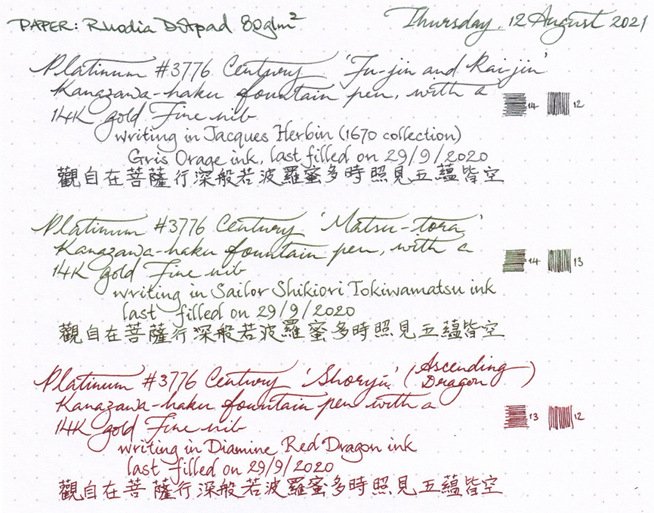 PAPER: Rhodia Dotpad 80g/m² Thursday, 12 August 2021
Platinum #3776 Century 'Fu-jin and Rai-jin'
Kanazawa-haku fountain pen, with a
14K gold Fine nib
14 12
writing in Jacques Herbin (1670 collection)
Gris Orage ink, last filled on 29/9/2020
觀自在菩薩行深般若波羅蜜多時照見五蘊皆空
Platinum #3776 Century 'Matsu-tora'
Kanazawa-haku fountain pen, with a
14K gold Fine nib
14 13
writing in Sailor Shikiori Tokiwamatsu ink
last filled on 29/9/2020
觀自在菩薩行深般若波羅蜜多時照見五蘊皆空
Platinum #3776 Century 'Shoryū' (Ascending Dragon)
Kanazawa-haku fountain pen with a
14K gold Fine nib
13 12
writing in Diamine Red Dragon ink
last filled on 29/9/2020
觀自在菩薩行深般若波羅蜜多時照見五蘊皆空